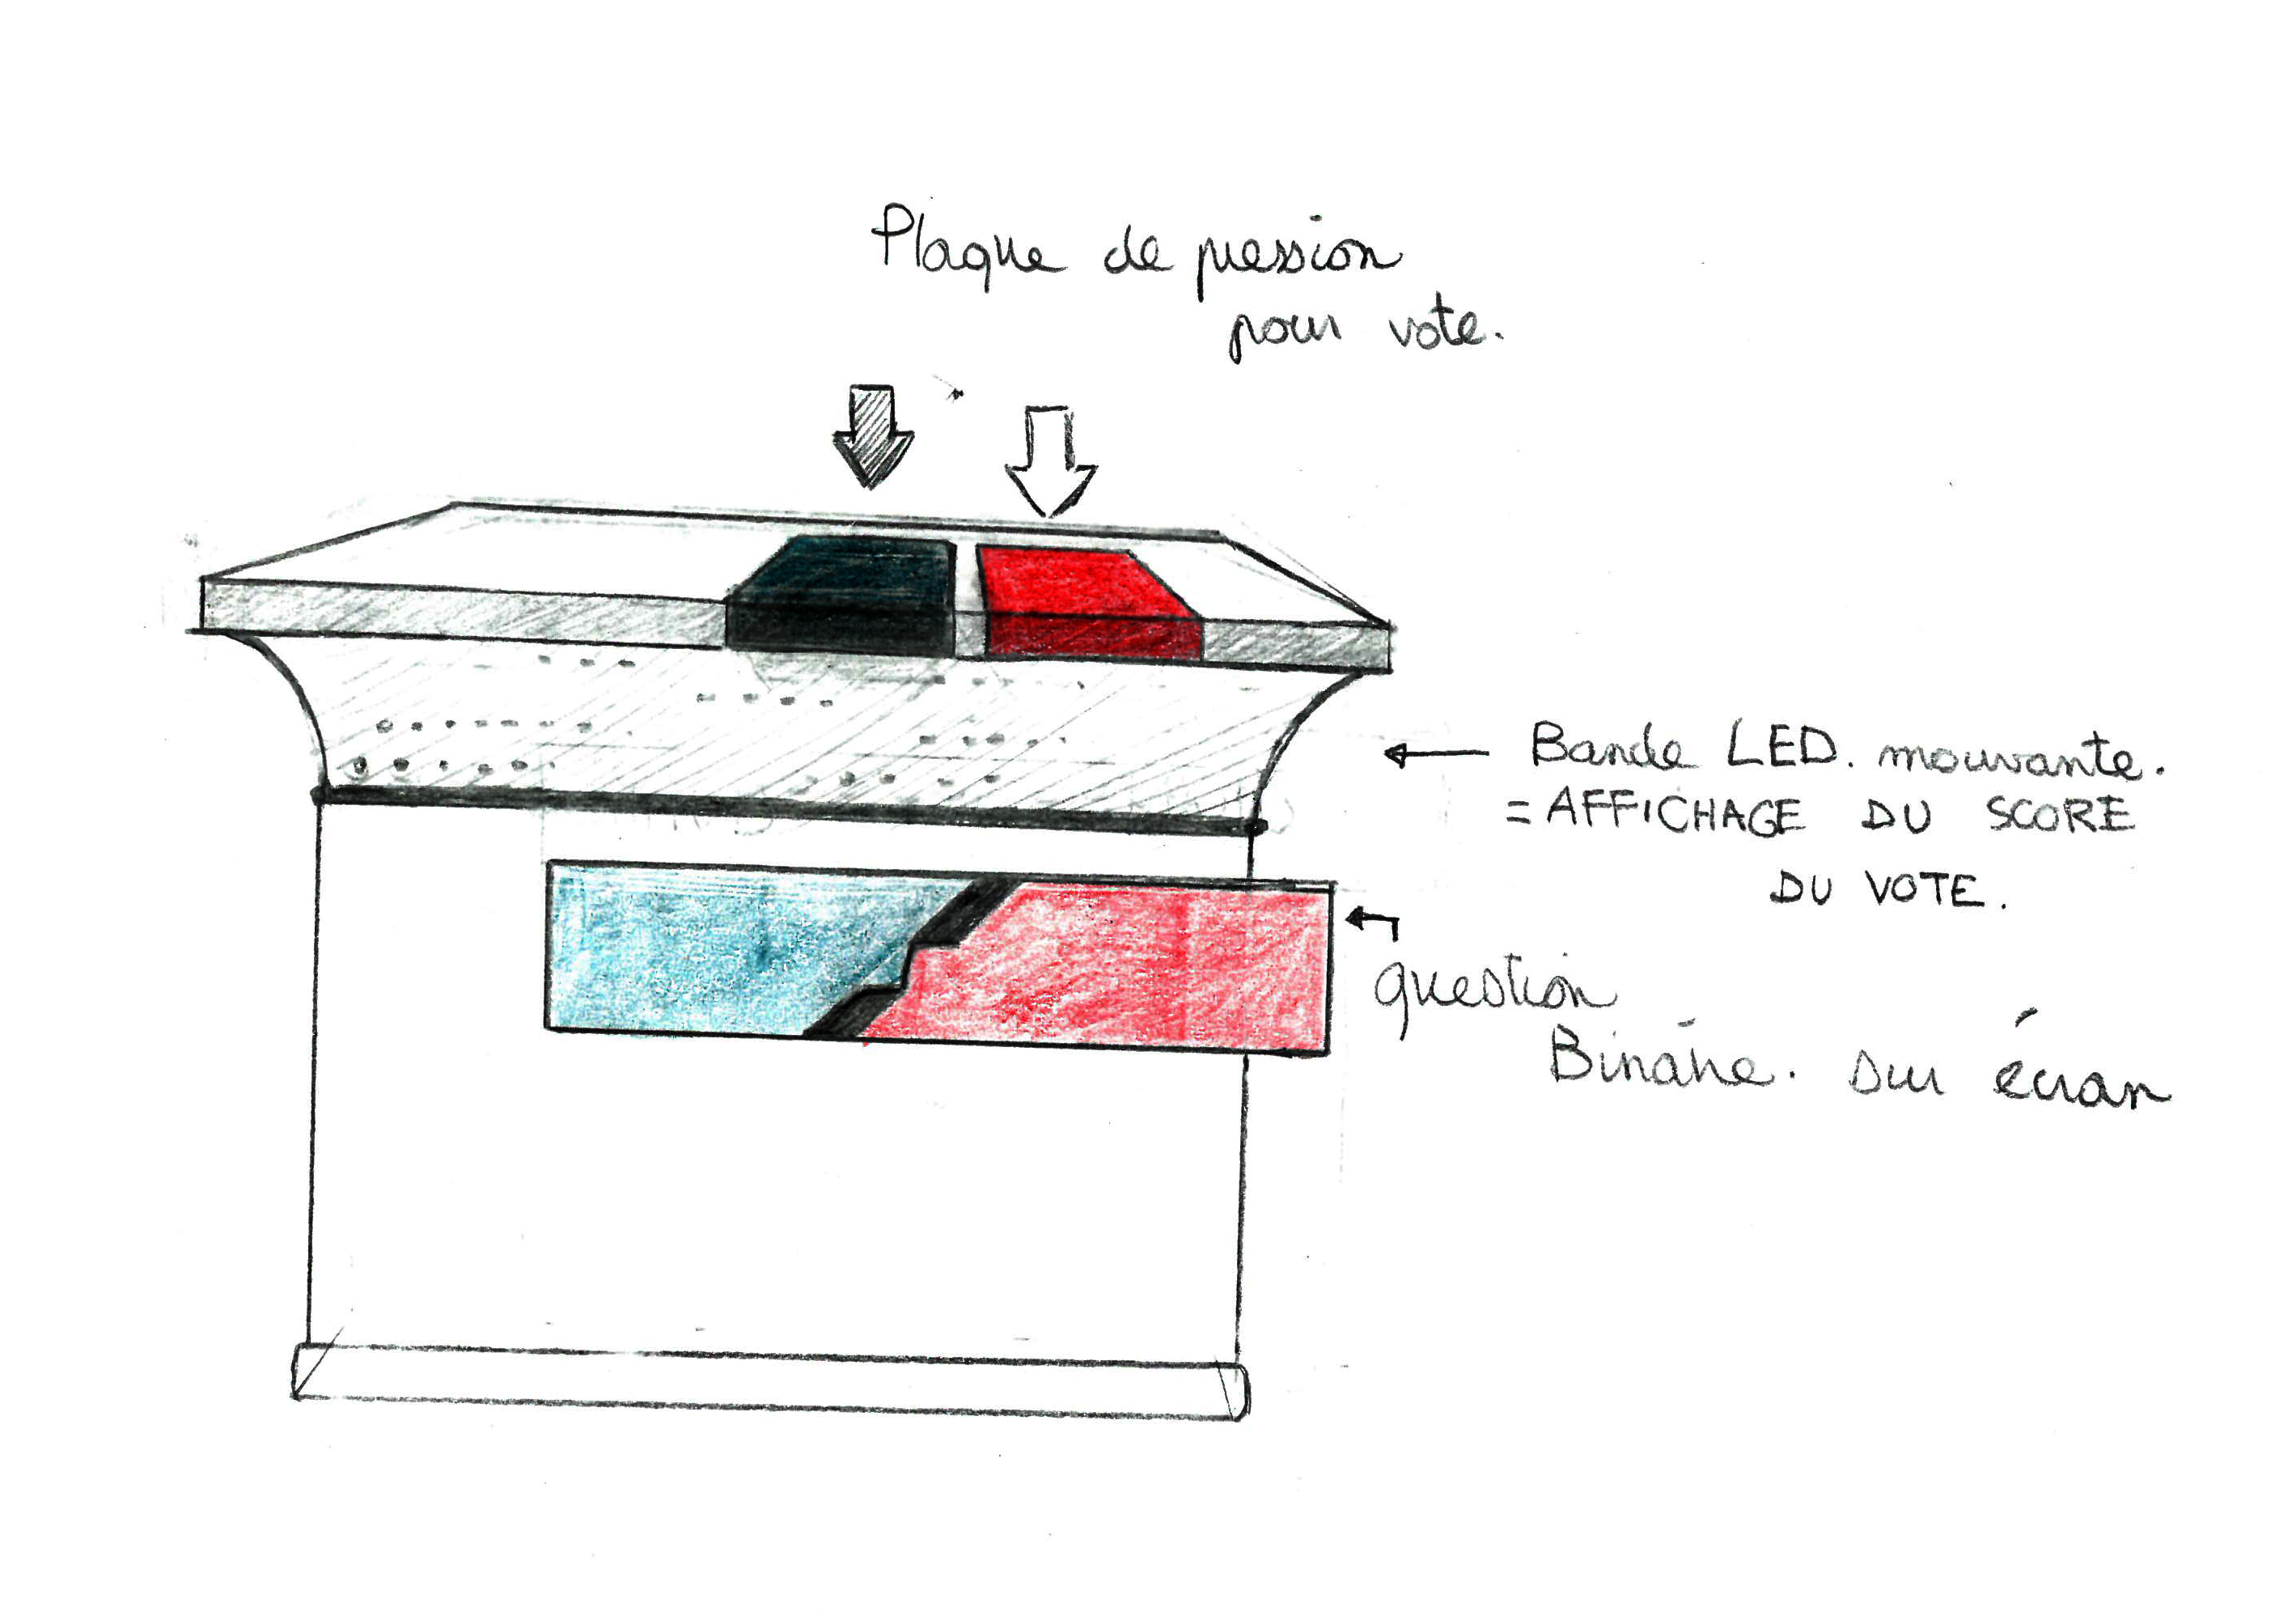 Plaque de pression
pour vote.
Bande LED. mouvante.
= AFFICHAGE DU SCORE
DU VOTE.
question
Binaire. sur écran